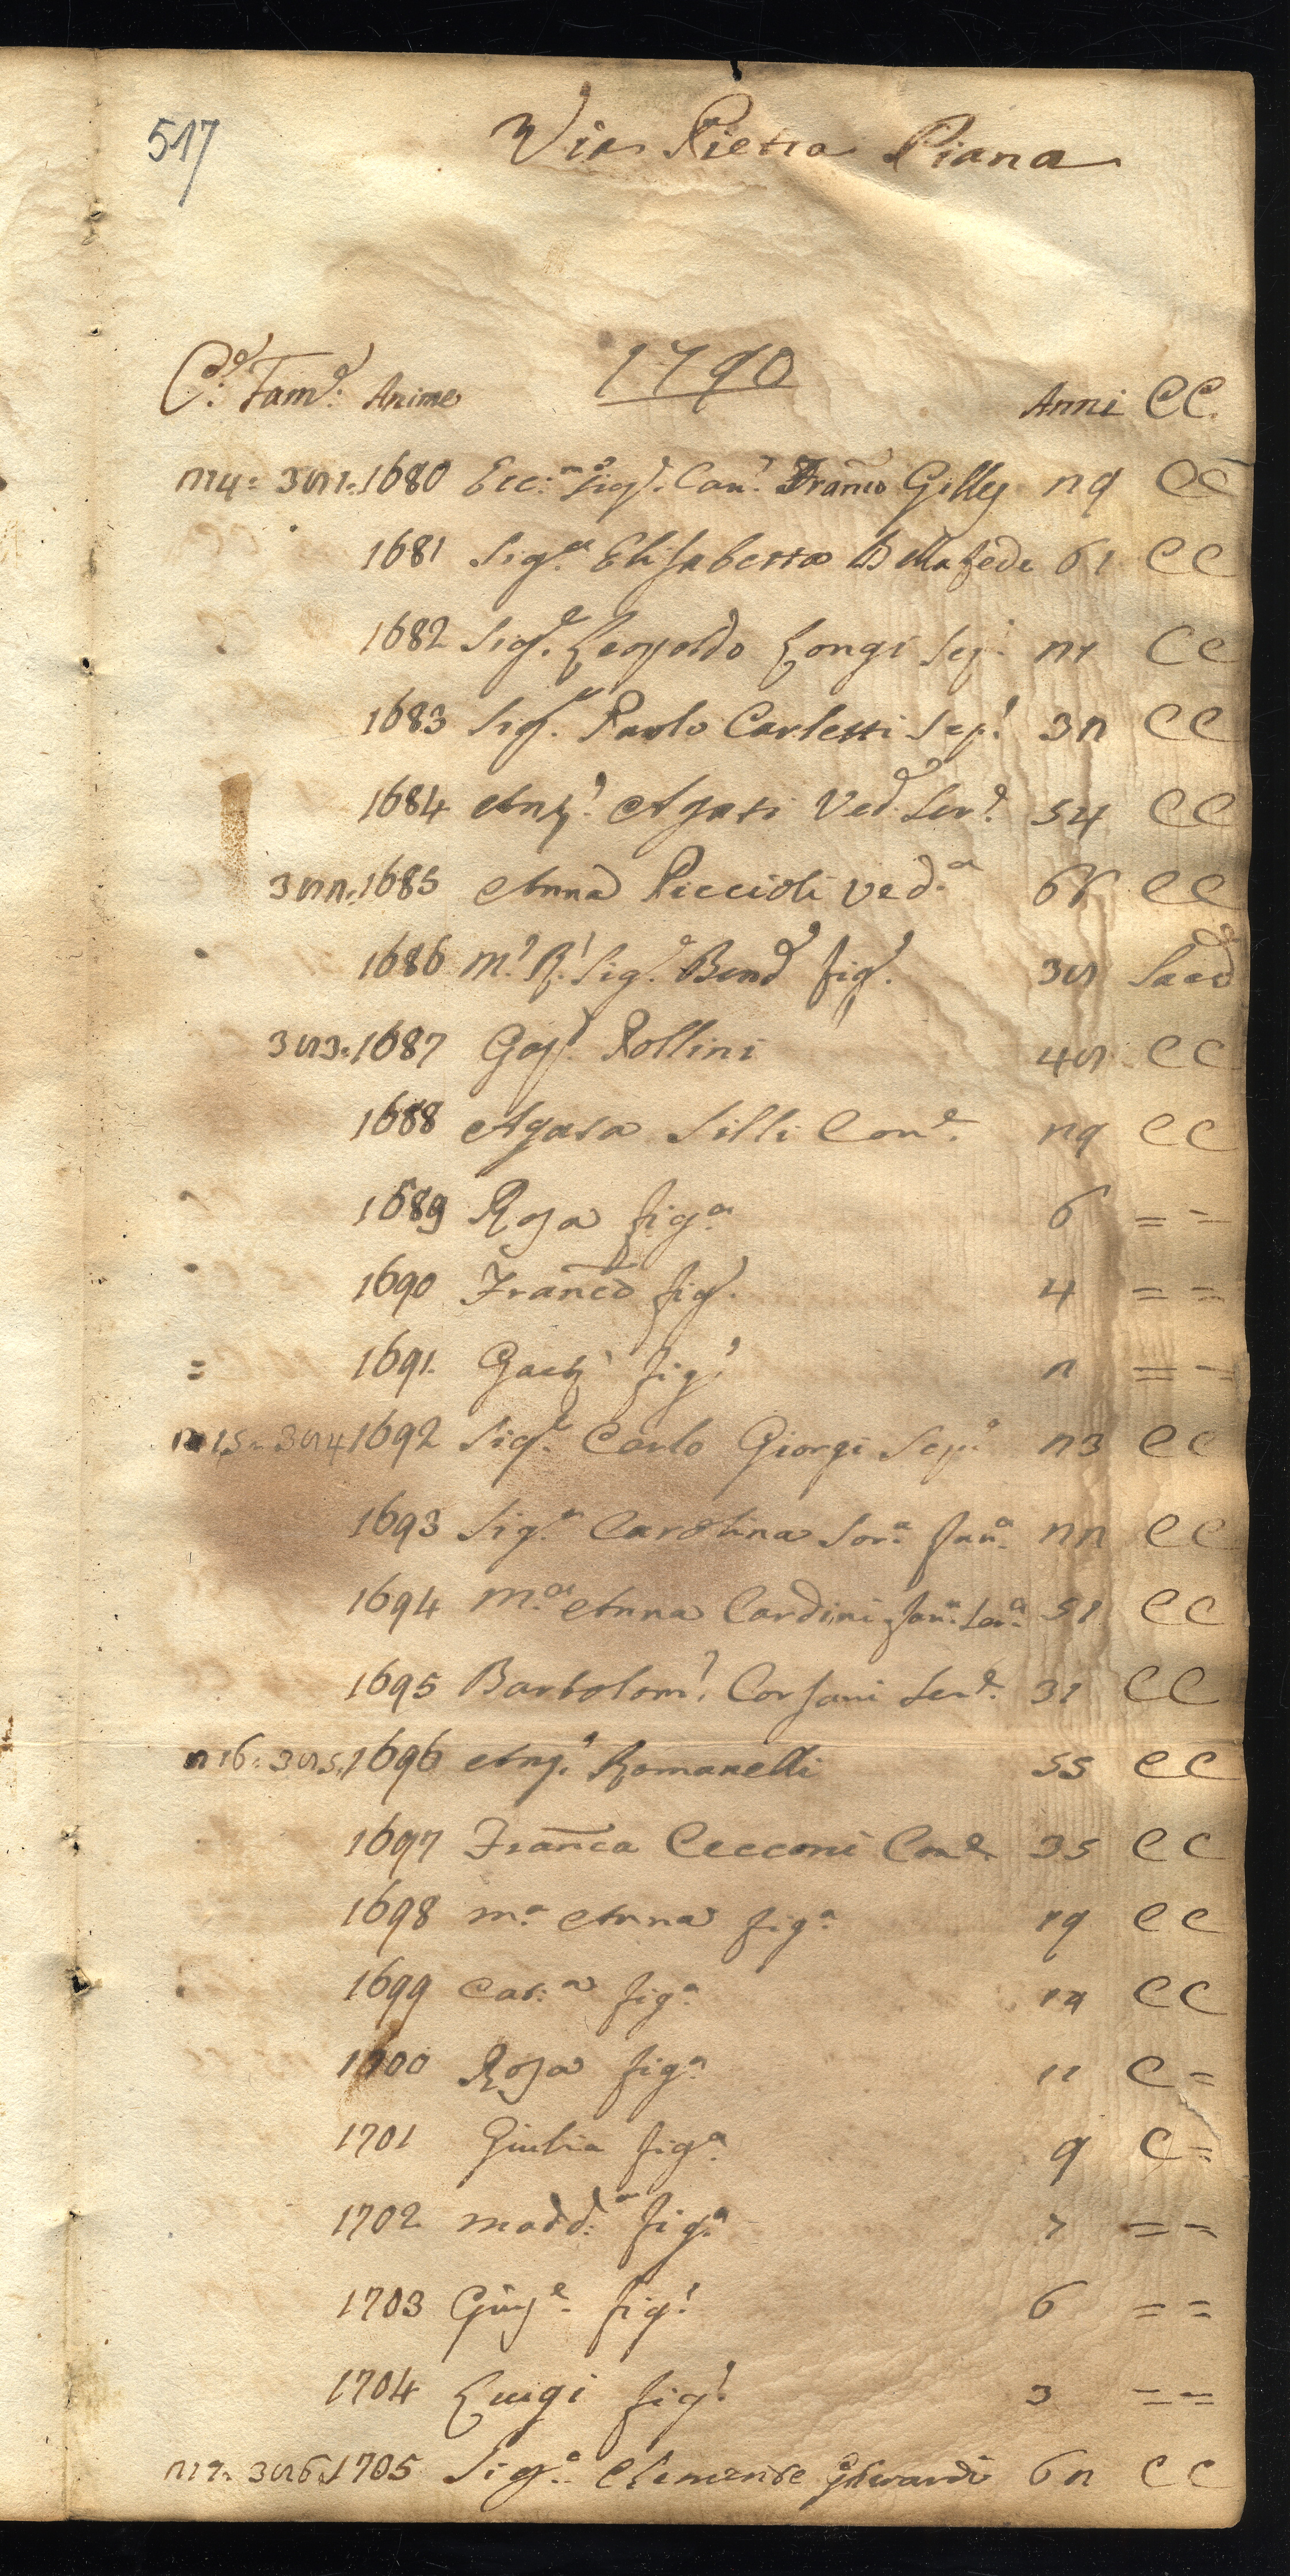 517
Via Pietra Piana
1790
C.e Fam.e Anime Anni CC.
214: 381: 1680 Ecc.mo Sig.r Can.o Franco Gilly 29 CC
1681 Sig.ra Elisabetta Della fede 61 CC
1682 Sig.e Leopoldo Longi Sep.o 21 CC
1683 Sig.r Paolo Carletti Sep.o 32 CC
1684 Ang.o Agati Ved. Ser.e 54 CC
382: 1685 Anna Piccioli Ved.a CC
1686 M.o R.o Sig.e Bened fig.o 38 Sacd
383: 1687 Gasp.o Pollini 48 CC
1688 Agata Silli Con.e 29 CC
1689 Rosa fig.a 6 = =
1690 Franco fig.o 4 = =
= 1691 Gaet.o fig.o 2 = =
215: 384 1692 Sig.e Carlo Giorgi Sep.o 23 CC
1693 Sig.a Carolina Sor.a fan.a 22 CC
1694 M.a Anna Cardini fan.a Ser.a 51 CC
1695 Bartolom.o Corsani Ser.e 31 CC
216: 385: 1696 Ang.o Romanelli 55 CC
1697 Franca Cecconi Con.e 35 CC
1698 M.a Anna fig.a 19 CC
1699 Cat.a fig.a CC
1700 Rosa fig.a 11 C =
1701 Giulia fig.a 9 C =
1702 Madd.a fig.a 7 = =
1703 Giuse.e fig.o 6 = =
1704 Luigi fig.o 3 = =
217: 386: 1705 Sig.e Clemente Gherardi 62 CC